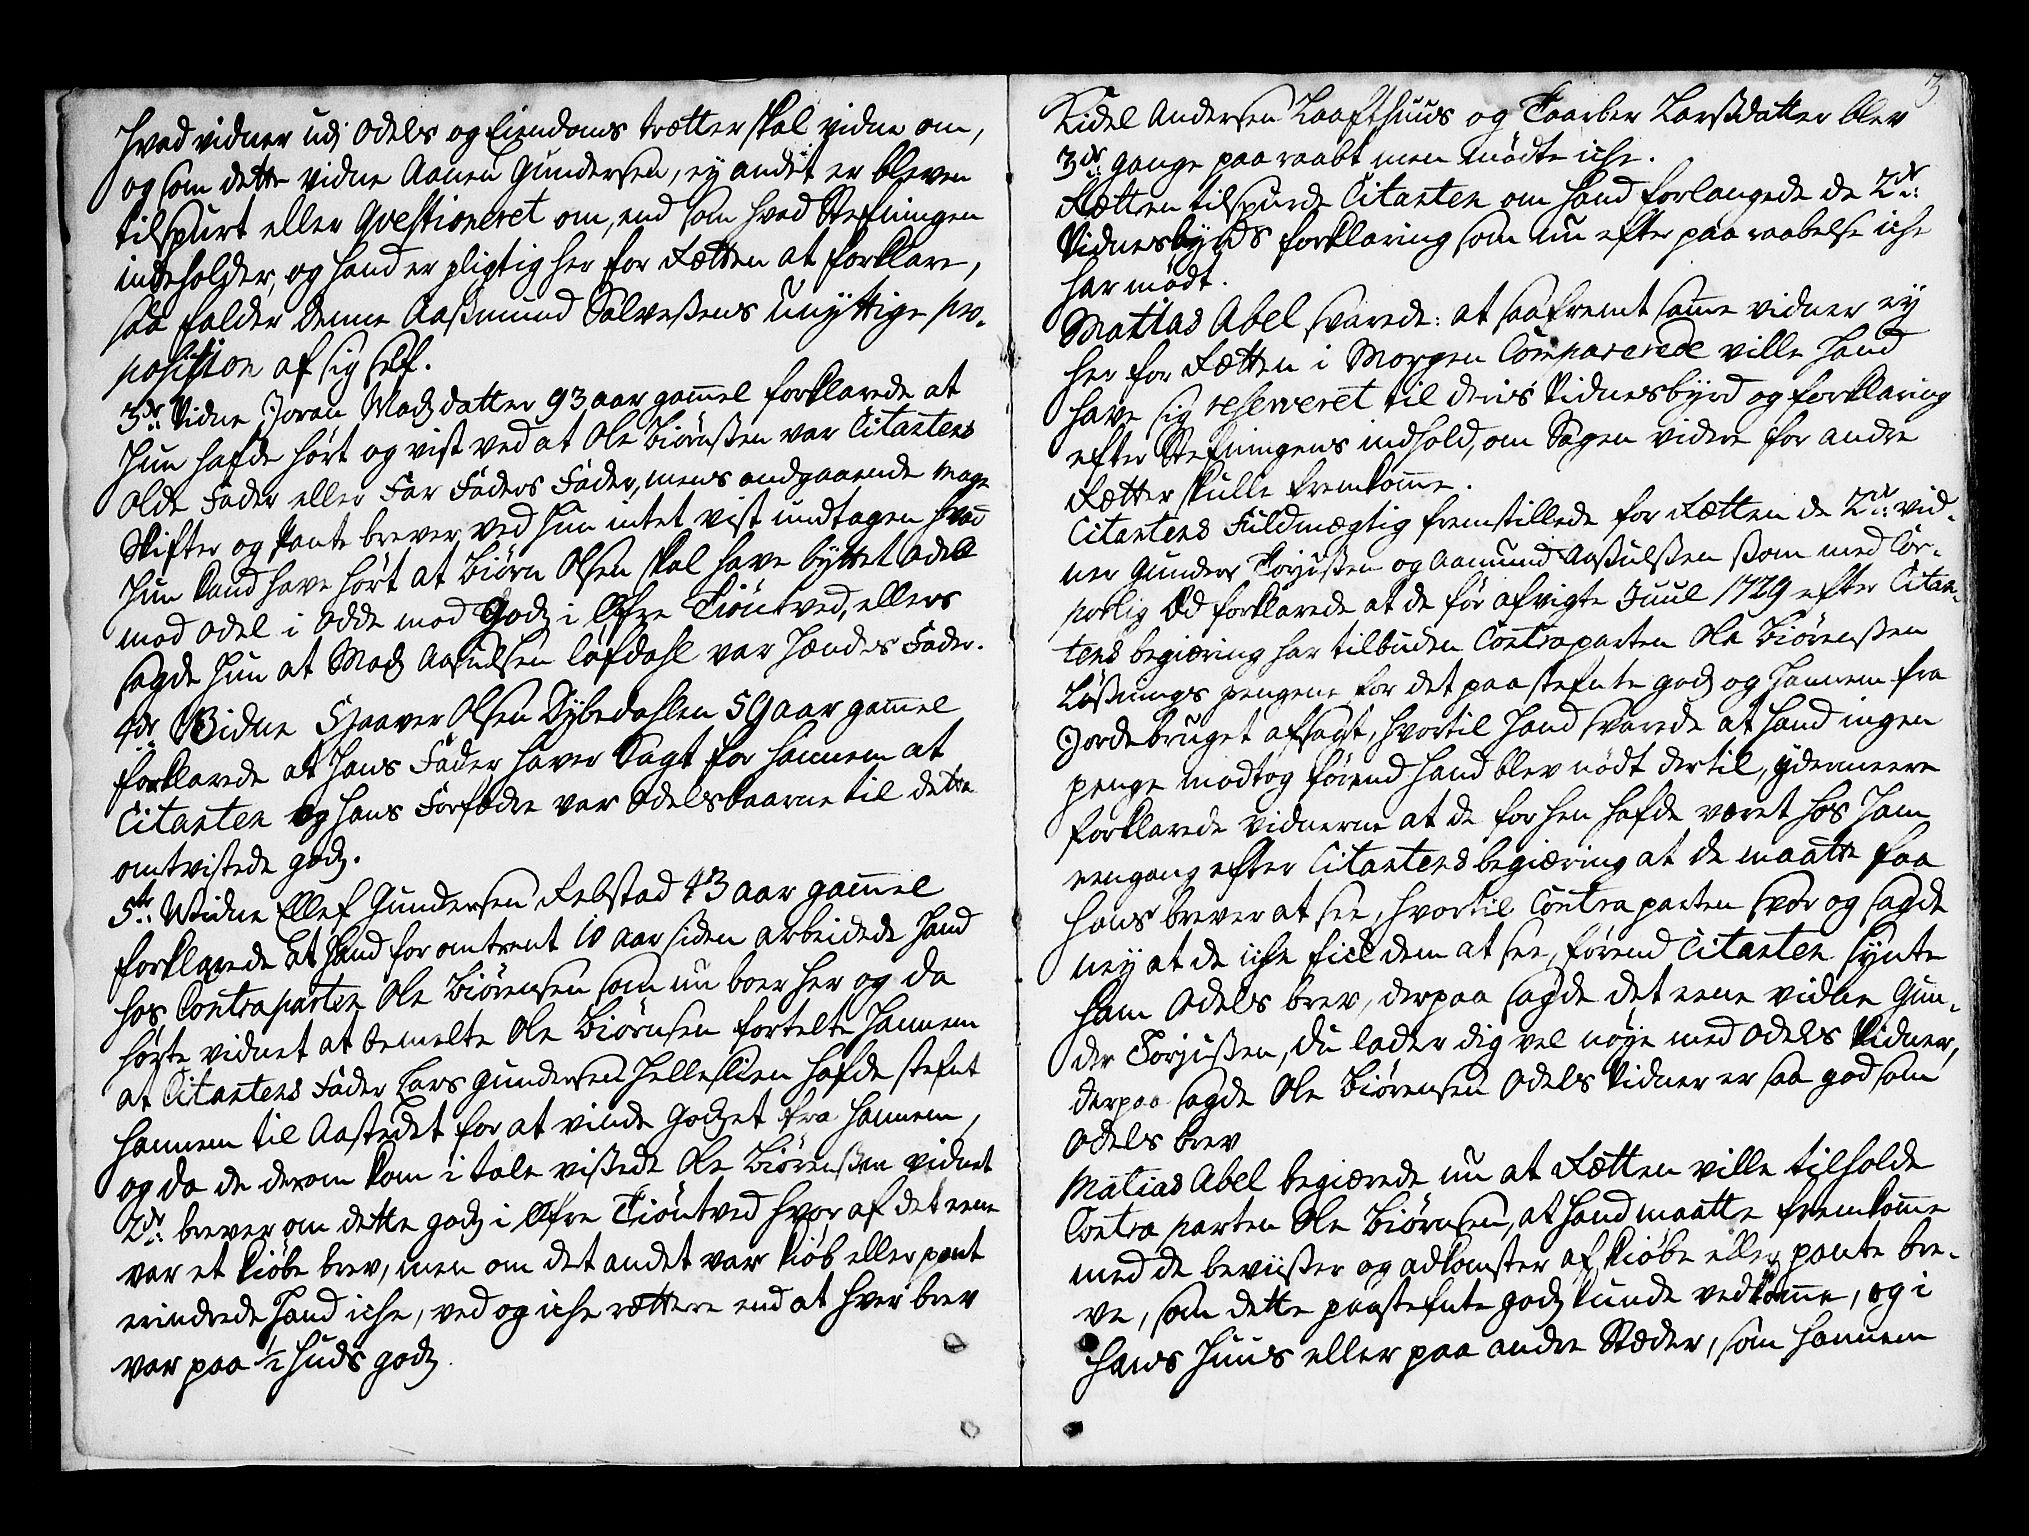 hvad vidner udj Odels og Eiendoms trætter skal vidne om,
og som dette vidne Aanen Gundersen, ey andet er bleven
tilspurt eller Qvestioneret om, end som hvad Stefningen
indeholder, og hand er pligtig her for Retten at forklare,
saa falder denne Aassmund Salvessens unyttige pro-
position af sig self.
3de Vidne Joran Madz datter 93 aar gamel forklarede at
hun hafde hørt og vist ved at Ole Biørnssen var Citantens
Olde Fader eller Far Faders Fader, mens andgaaende mage
Skifter og pante brever, ved hun intet vist undtagen hvad
hun kand have hørt at Biørn Olsen skal have byttet odell
mod odel i Odde mod Godz i Øfre Tiøntved, ellers
sagde hun at Madz Aasulsen løfdahl var hendes Fader.
4de Vidne Siaaver Olsen Dybedahlen 59 aar gamel
forklarede at hans Fader haver Sagt for hannem at
Citanten og hans Forfædre var Odelsbaarne til dette
omtvistede godz.
5te Widne Ellef Gundersen Rebstad 43 aar gamel
forklarede at hand for omtrent 10 aar siden arbeidede hand
hos Contraparten Ole Biørensen som nu boer her og da
hørte vidnet at bemelte Ole Biørnsen fortelte hannem
at Citantens Fader Lars Gundersen Helleslien hafde stefnt
hannem til Aastedet for at vinde Godzet fra hannem,
og da de derom kom i tale vissede Ole Biørenssen vidnet
2de brever om dette godz i Øfre Tiøntved hvor af det eene
var et kiøbe brev, men om det andet var kiøb eller pant
erindrede hand iche, ved og iche rættere end at hver brev
var paa 1/2 huds godz.
3
Kidel Andersen Laafthuus og Taarber Larssdatter blev
3de gange paa raabt men mødte iche.
Rætten tilspurde Citanten om hand forlangede de 2de
Vidnesbyrds forklaring som nu efter paa raabelse iche
har mødt.
Matias Abel svarede: at saafremt same vidner ey
her for Rætten i Morgen Comparerede ville hand
have sig reserveret til deris Vidnesbyrd og forklaring
efter Stefningens indhold, om Sagen videre for andre
Rætter skulle fremkomme.
Citantens Fuldmægtig fremstillede for Rætten de 2de vid-
ner Gunder Torjussen og Aamund Aassulssen som med Cor-
porlig Æd forklarede at de før afvigte Juul 1729 efter Citan-
tens begiæring har tilbuden Contraparten Ole Biørenssen
Løsnings pengene for det paastefnte godz og hannem fra
Jordebruget afsagt, hvortil hand svarede at hand ingen
penge modtog førend hand blev nødt dertil, ydermeere
forklarede vidnerne at de for hen hafde været hos ham
eengang efter Citantens begiæring at de maatte faa
hans brever at see, hvortil Contraparten svor og sagde
ney at de iche fich dem at see, førend Citanten synte
ham Odels brev, derpaa sagde det eene vidne Gun-
der Torjussen, du lader dig vel nøye med Odels Vidner,
derpaa sagde Ole Biørensen Odels Vidner er saa god som
Odels brev
Matias Abel begiærede nu at Rætten ville tilholde
Contra parten Ole Biørnsen, at hand maatte fremkomme
med de beviisser og adkomster af kiøbe eller pante bre-
ve, som dette paastefnte godz kunde vedkomme, og i
hans huus eller paa andre Stæder, som hannem